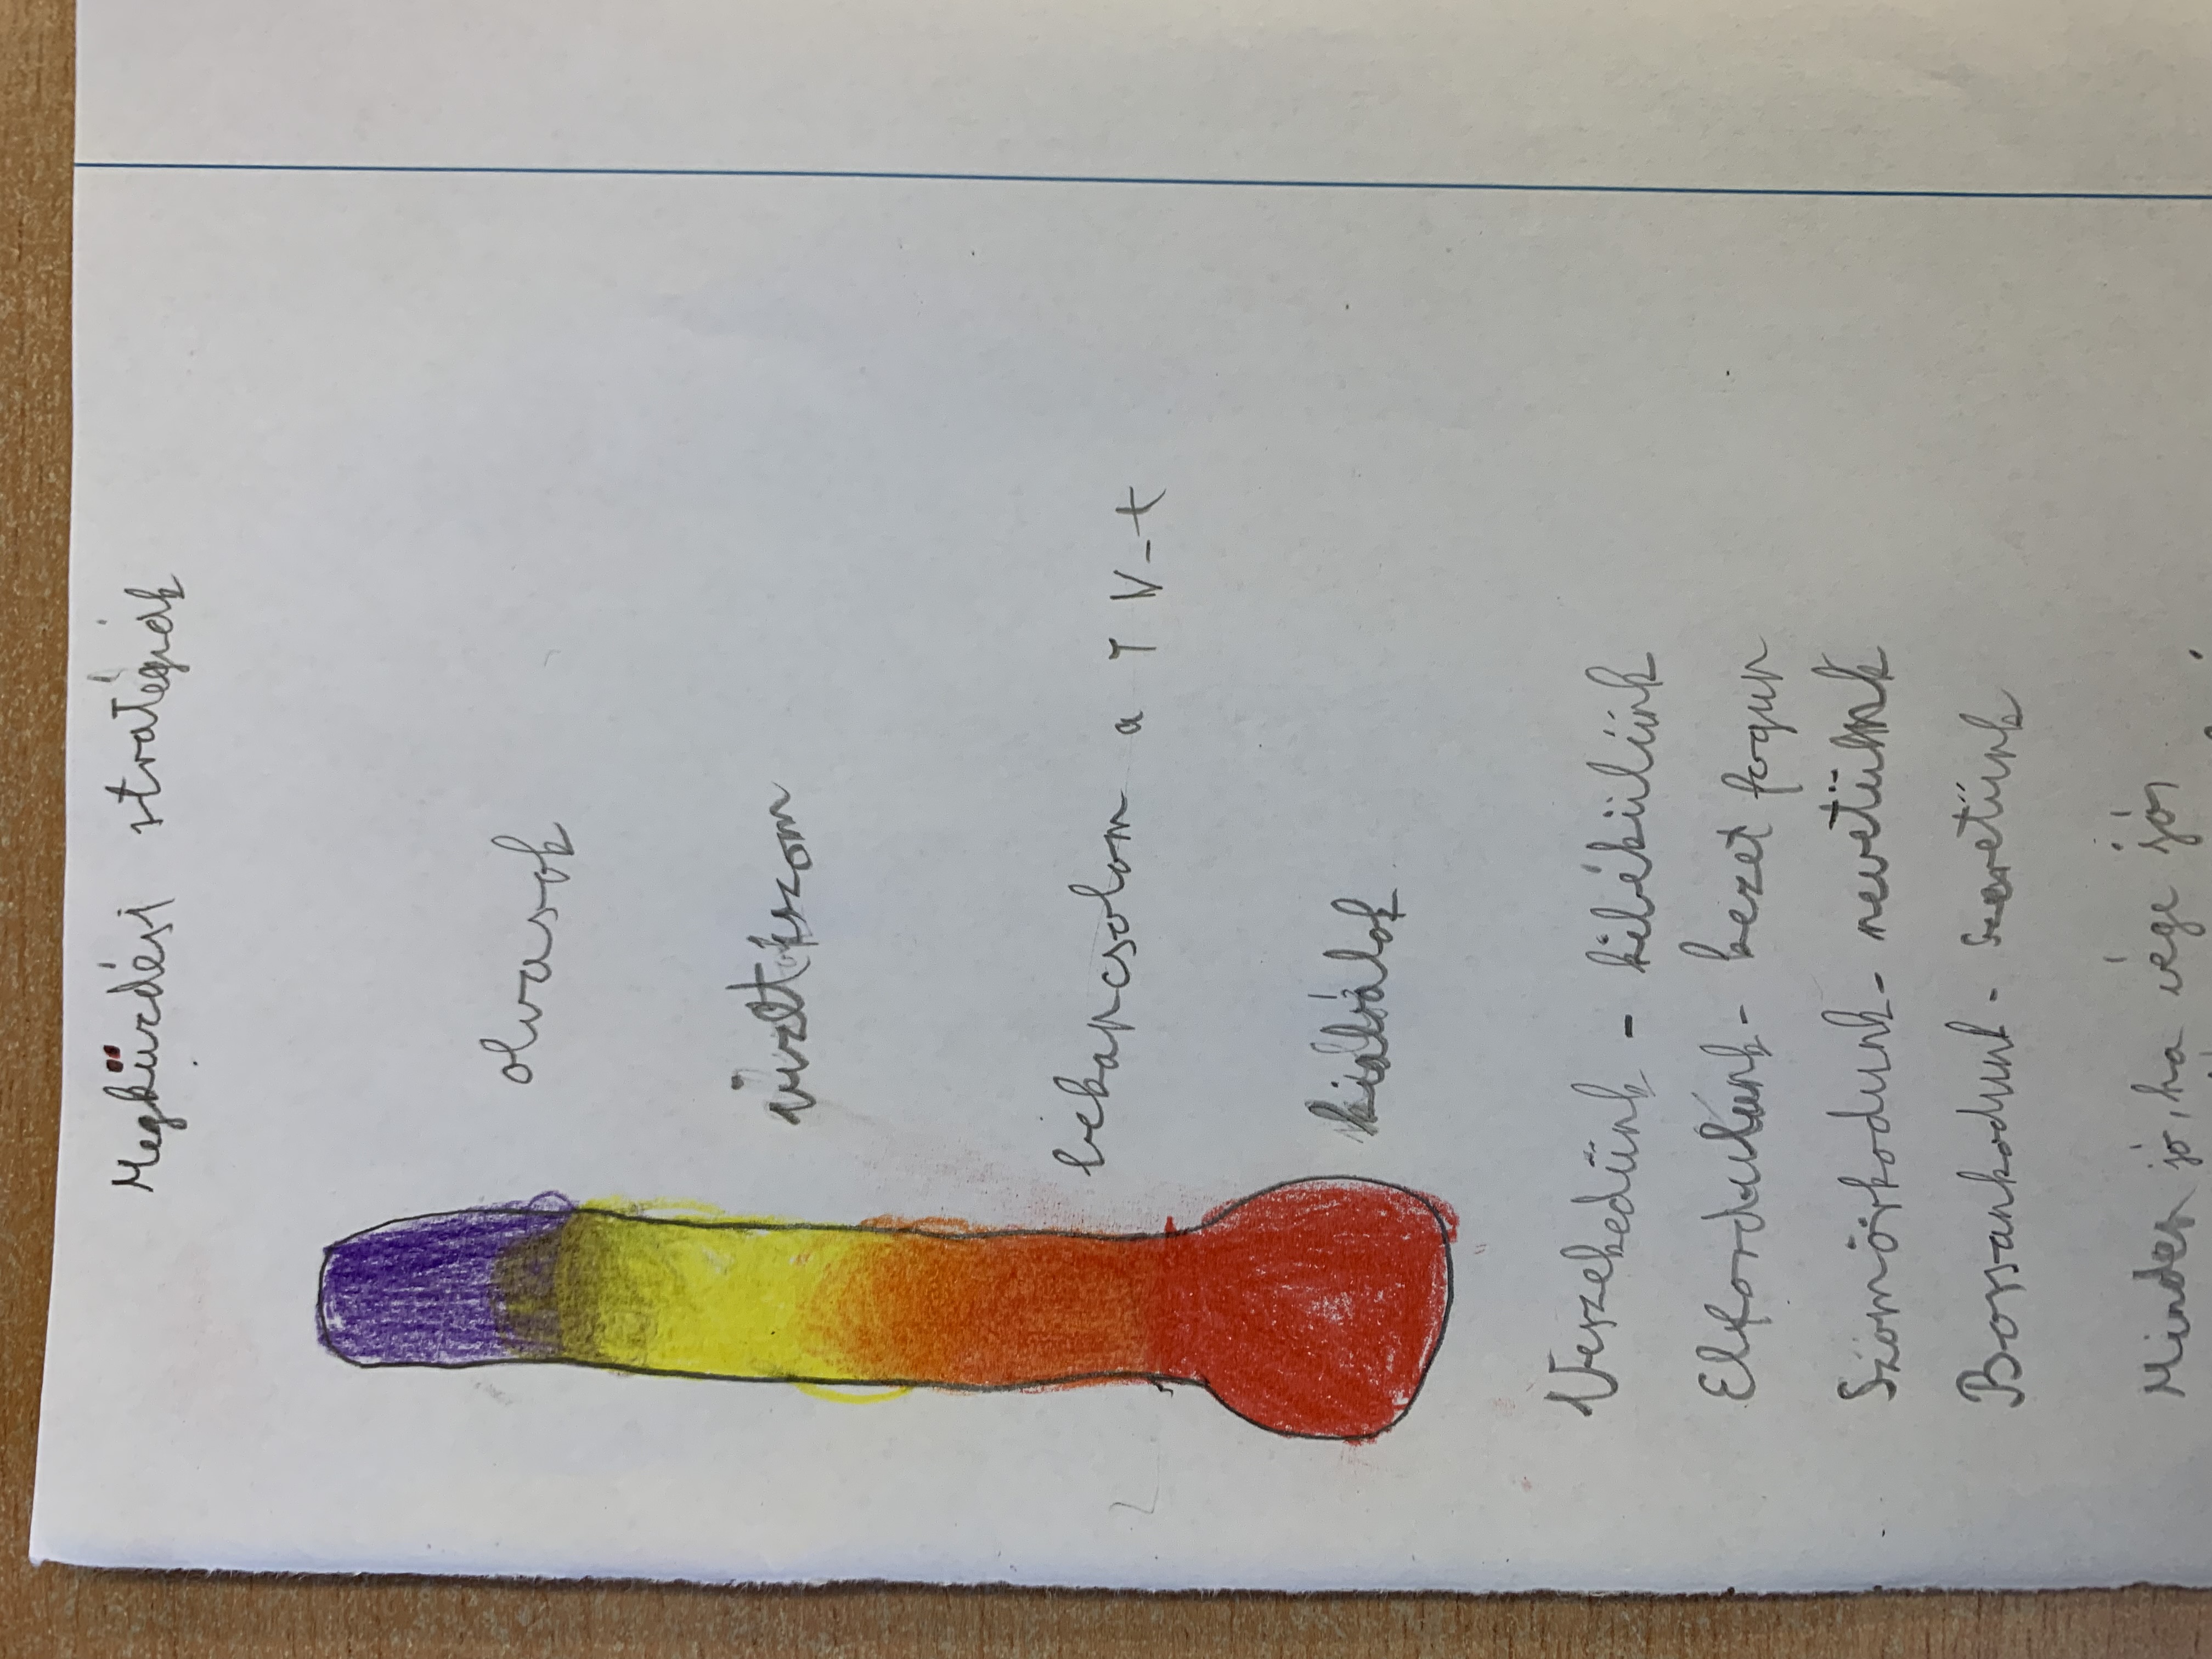 Megküzdési stratégiák
olvasok
bekapcsolom a TV-t
kiáltok
Veszekedünk - kibékülünk
Elfordulunk - kezet fogun
Szomorkodunk - nevetünk
Bossankodunk - szeretünk
Minden jó, ha vége jó